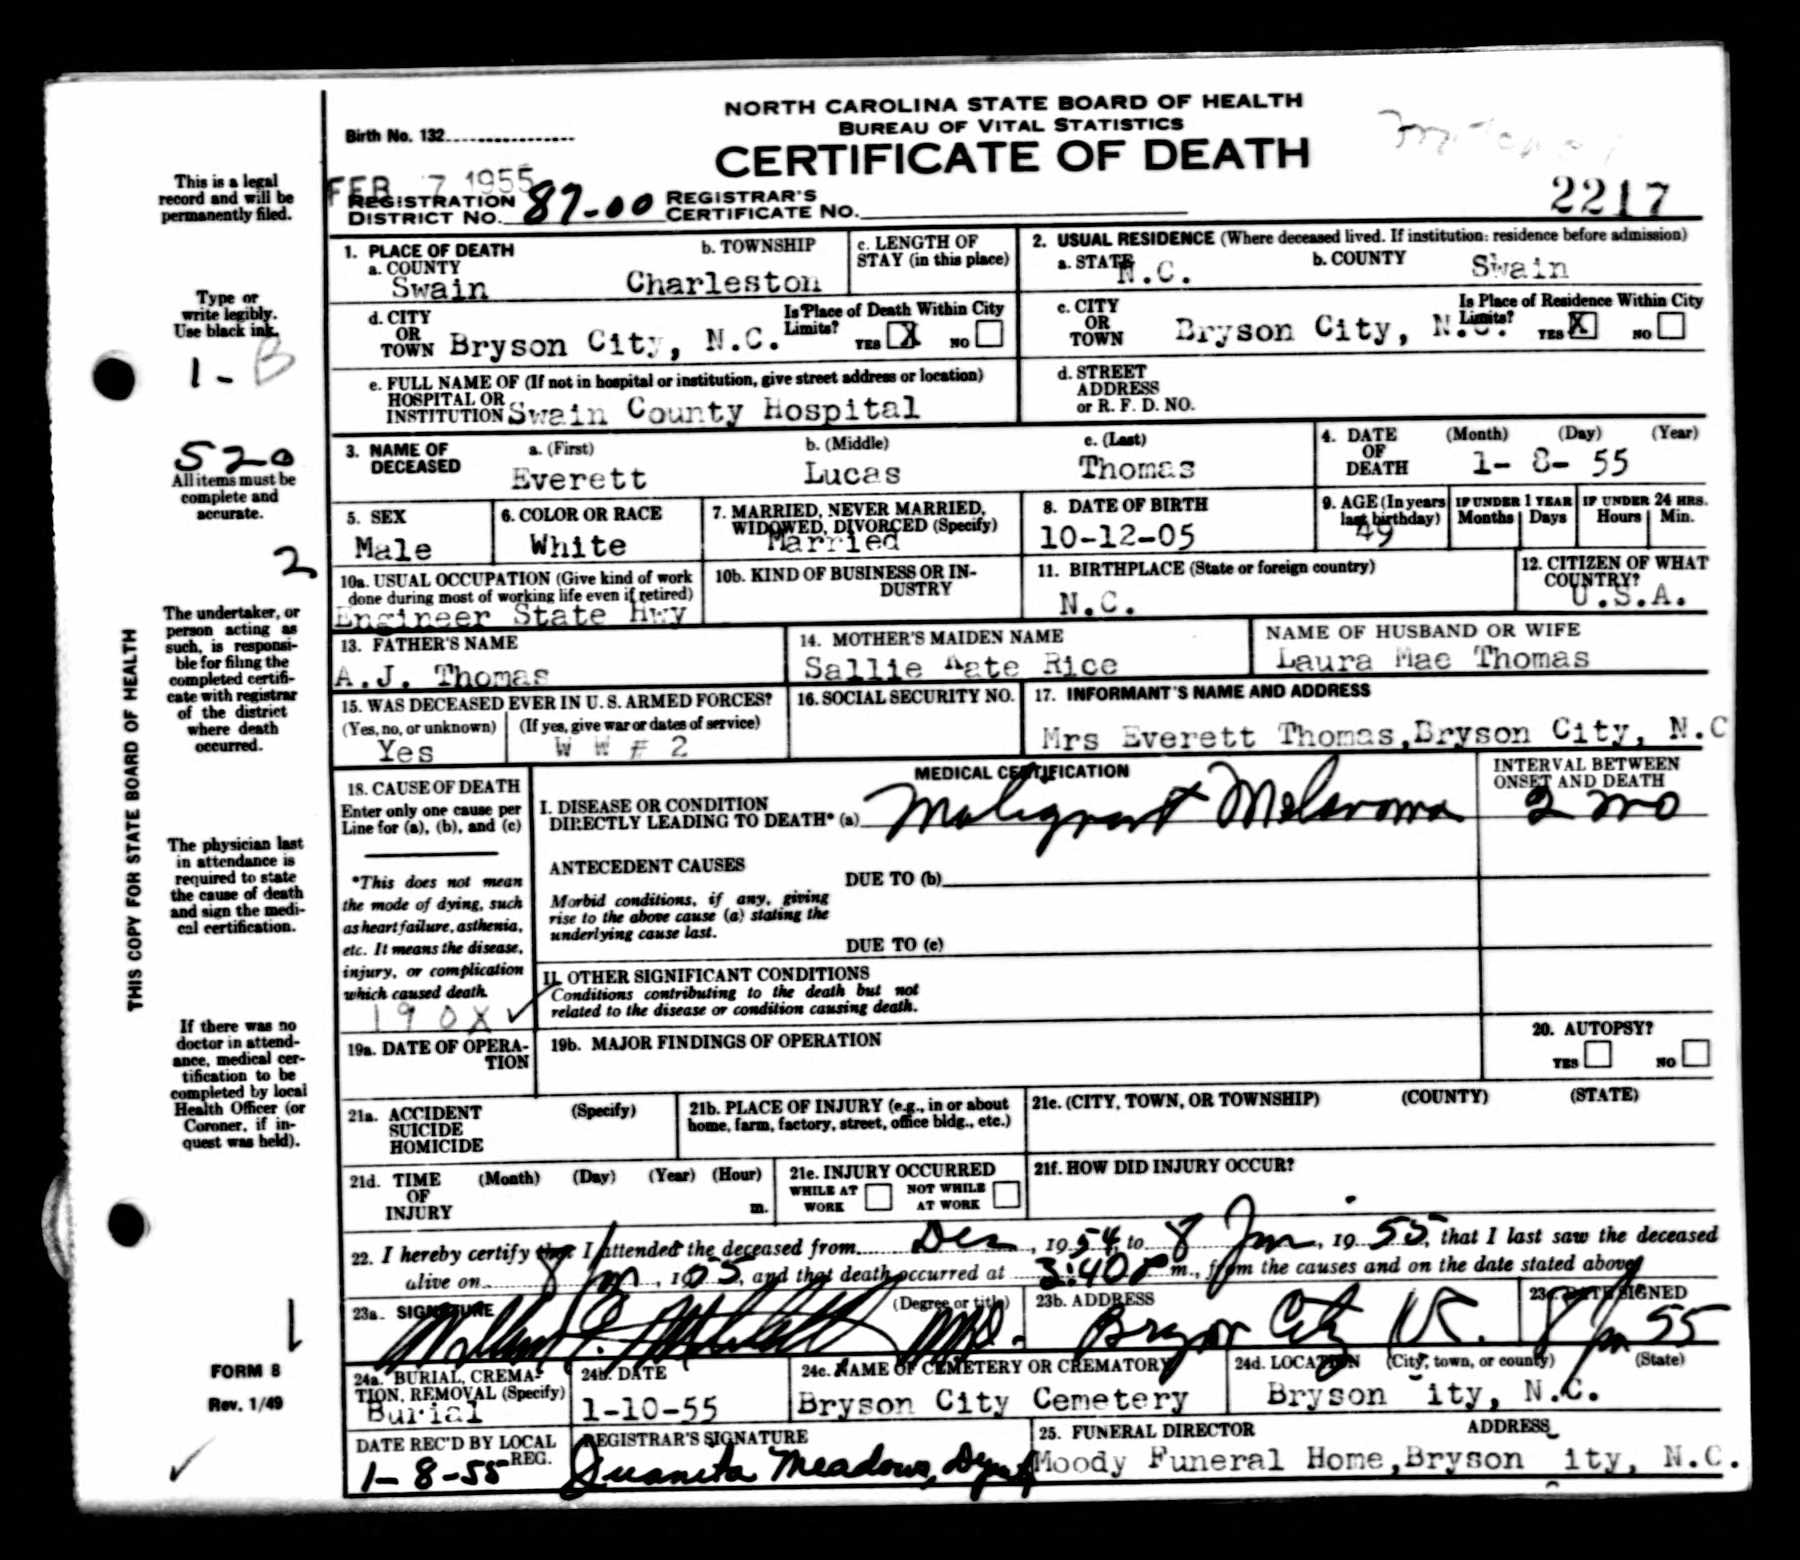 NORTH CAROLINA STATE BOARD OF HEALTH
BUREAU OF VITAL STATISTICS
CERTIFICATE OF DEATH
Birth No. 132
FEB 7 1955
REGISTRATION DISTRICT NO. 87-00 REGISTRAR'S CERTIFICATE NO.
2217
This is a legal
record and will be
permanently filed.
Type or
write legibly.
Use black ink.
1-B
520
All items must be
complete and
accurate.
2
The undertaker, or
person acting as
such, is responsi-
ble for filing the
completed certifi-
cate with registrar
of the district
where death
occurred.
The physician last
in attendance is
required to state
the cause of death
and sign the medi-
cal certification.
If there was no
doctor in attend-
ance, medical cer-
tification to be
completed by local
Health Officer (or
Coroner, if in-
quest was held).
1
FORM 8
Rev. 1/49
THIS COPY FOR STATE BOARD OF HEALTH
1. PLACE OF DEATH
a. COUNTY Swain
b. TOWNSHIP Charleston
c. LENGTH OF STAY (in this place)
2. USUAL RESIDENCE (Where deceased lived. If institution: residence before admission)
a. STATE N.C.
b. COUNTY Swain
d. CITY OR TOWN Bryson City, N.C.
Is Place of Death Within City Limits? YES X NO
c. CITY OR TOWN Bryson City, N.C.
Is Place of Residence Within City Limits? YES X NO
e. FULL NAME OF (If not in hospital or institution, give street address or location)
HOSPITAL OR INSTITUTION Swain County Hospital
d. STREET ADDRESS or R. F. D. NO.
3. NAME OF DECEASED
a. (First) Everett
b. (Middle) Lucas
c. (Last) Thomas
4. DATE OF DEATH (Month) (Day) (Year)
1- 8- 55
5. SEX Male
6. COLOR OR RACE White
7. MARRIED, NEVER MARRIED, WIDOWED, DIVORCED (Specify) Married
8. DATE OF BIRTH 10-12-05
9. AGE (In years last birthday) 49
IF UNDER 1 YEAR Months Days
IF UNDER 24 HRS. Hours Min.
10a. USUAL OCCUPATION (Give kind of work done during most of working life even if retired) Engineer State Hwy
10b. KIND OF BUSINESS OR INDUSTRY
11. BIRTHPLACE (State or foreign country) N.C.
12. CITIZEN OF WHAT COUNTRY? U.S.A.
13. FATHER'S NAME A.J. Thomas
14. MOTHER'S MAIDEN NAME Sallie Kate Rice
NAME OF HUSBAND OR WIFE Laura Mae Thomas
15. WAS DECEASED EVER IN U. S. ARMED FORCES?
(Yes, no, or unknown) Yes
(If yes, give war or dates of service) W W # 2
16. SOCIAL SECURITY NO.
17. INFORMANT'S NAME AND ADDRESS
Mrs Everett Thomas, Bryson City, N.C
18. CAUSE OF DEATH
Enter only one cause per
Line for (a), (b), and (c)
*This does not mean
the mode of dying, such
as heart failure, asthenia,
etc. It means the disease,
injury, or complication
which caused death.
190X ✓
MEDICAL CERTIFICATION
INTERVAL BETWEEN ONSET AND DEATH
I. DISEASE OR CONDITION
DIRECTLY LEADING TO DEATH* (a) Malignant Melanoma 2 mo
ANTECEDENT CAUSES
DUE TO (b)
Morbid conditions, if any, giving
rise to the above cause (a) stating the
underlying cause last.
DUE TO (c)
II. OTHER SIGNIFICANT CONDITIONS
Conditions contributing to the death but not
related to the disease or condition causing death.
19a. DATE OF OPERATION
19b. MAJOR FINDINGS OF OPERATION
20. AUTOPSY?
YES NO
21a. ACCIDENT SUICIDE HOMICIDE (Specify)
21b. PLACE OF INJURY (e.g., in or about home, farm, factory, street, office bldg., etc.)
21c. (CITY, TOWN, OR TOWNSHIP) (COUNTY) (STATE)
21d. TIME OF INJURY (Month) (Day) (Year) (Hour) m.
21e. INJURY OCCURRED
WHILE AT WORK NOT WHILE AT WORK
21f. HOW DID INJURY OCCUR?
22. I hereby certify that I attended the deceased from Dec, 1954, to 8 Jan, 1955, that I last saw the deceased
alive on 8 Jan, 1955, and that death occurred at 3:40 P m., from the causes and on the date stated above.
23a. SIGNATURE (Degree or title) M.D.
23b. ADDRESS Bryson City N.C.
23c. DATE SIGNED 8 Jan 55
24a. BURIAL, CREMATION, REMOVAL (Specify) Burial
24b. DATE 1-10-55
24c. NAME OF CEMETERY OR CREMATORY Bryson City Cemetery
24d. LOCATION (City, town, or county) (State)
Bryson ity, N.C.
DATE REC'D BY LOCAL REG. 1-8-55
REGISTRAR'S SIGNATURE Juanita Meadows, Deputy
25. FUNERAL DIRECTOR ADDRESS
Moody Funeral Home, Bryson ity, N.C.